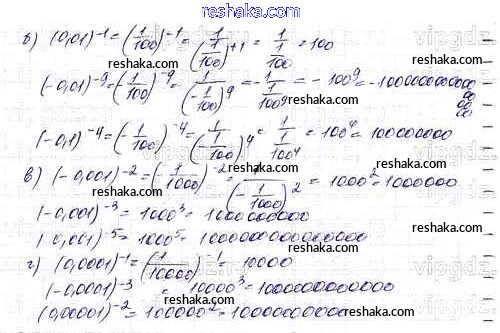 reshaka.com
б) (0,01)^-1 = (1/100)^-1 = 1/(1/100)^+1 = 1/(1/100) = 100
(-0,01)^-9 = (-1/100)^-9 = 1/(-1/100)^9 = -1/(1/100^9) = -100^9 = -1000000000000
reshaka.com
(-0,1)^-4 = (-1/100)^-4 = 1/(-1/100)^4 = 1/(1/100^4) = 100^4 = 100000000
в) (-0,001)^-2 = (-1/1000)^-2 = 1/(-1/1000)^2 = 1000^2 = 1000000
reshaka.com
(-0,001)^-3 = 1000^3 = 1000000000
(0,001)^-5 = 1000^5 = 1000000000000000
г) (0,0001)^-1 = (1/10000)^-1 = 10000
(-0,0001)^-3 = 10000^3 = 1000000000000
(0,00001)^-2 = 100000^2 = 10000000000
reshaka.com